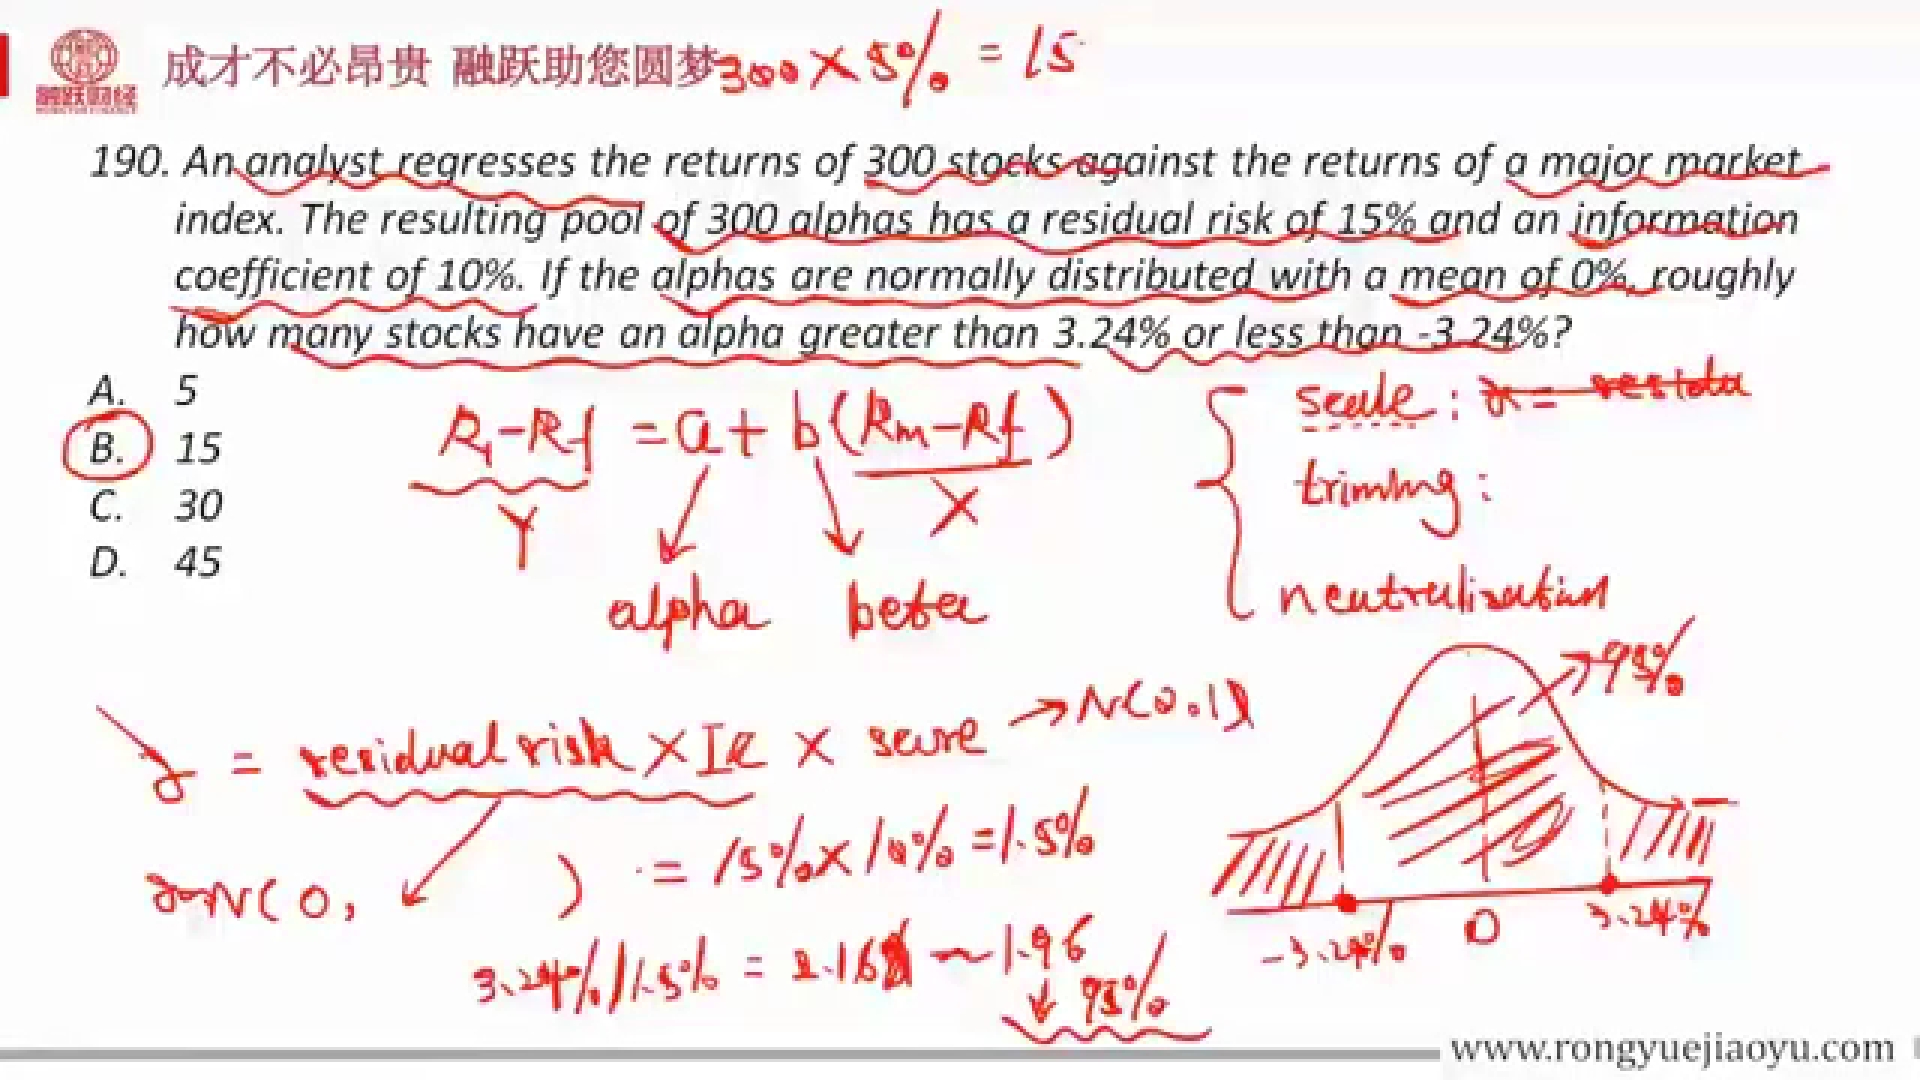 成才不必昂贵 融跃助您圆梦 300 × 5% = 15
融跃财经
190. An analyst regresses the returns of 300 stocks against the returns of a major market
index. The resulting pool of 300 alphas has a residual risk of 15% and an information
coefficient of 10%. If the alphas are normally distributed with a mean of 0%, roughly
how many stocks have an alpha greater than 3.24% or less than -3.24%?
A. 5
B. 15
C. 30
D. 45
R1-Rf = a + b(Rm-Rf)
Y X
alpha beta
scale:
triming:
neutralization
α = residual risk × IC × score → N(0,1)
95%
α~N(0, ) = 15% × 10% = 1.5%
3.24%/1.5% = 2.16 ~ 1.96
95%
-3.24% 0 3.24%
www.rongyuejiaoyu.com